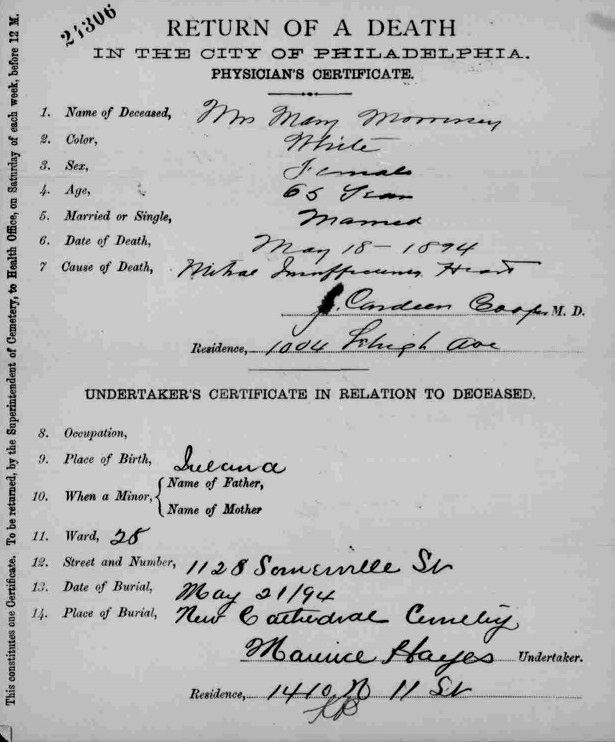 24306
RETURN OF A DEATH
IN THE CITY OF PHILADELPHIA.
PHYSICIAN'S CERTIFICATE.
1. Name of Deceased, Mrs Mary Morrissey
2. Color, White
3. Sex, Female
4. Age, 65 Years
5. Married or Single, Married
6. Date of Death, May 18 - 1894
7 Cause of Death, Mitral Insufficiency Heart
J. Cooper M. D.
Residence, 1004 Lehigh Ave
UNDERTAKER'S CERTIFICATE IN RELATION TO DECEASED.
8. Occupation,
9. Place of Birth, Ireland
10. When a Minor, { Name of Father,
Name of Mother
11. Ward, 28
12. Street and Number, 1128 Somerville St
13. Date of Burial, May 21/94
14. Place of Burial, New Cathedral Cemetery
Maurice Hayes Undertaker.
Residence, 1410 N 11 St
This constitutes one Certificate. To be returned, by the Superintendent of Cemetery, to Health Office, on Saturday of each week, before 12 M.